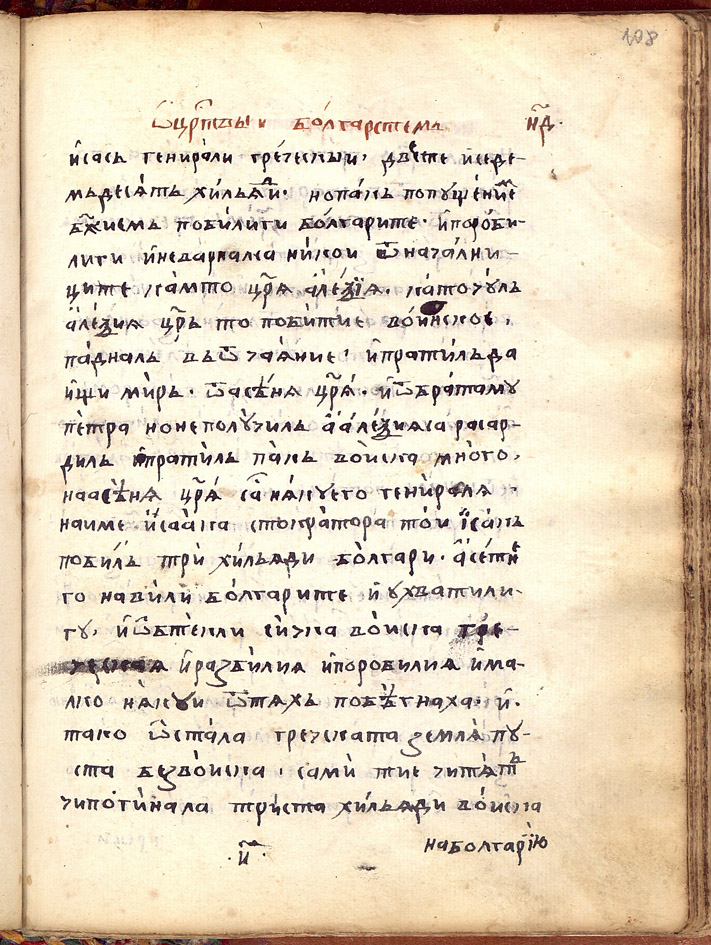 ѡ҆ црⷭ҇твы и болгарстемъ н҃д
и҆сасъ генирали греческыи· двѣсте и҆седе-
мьдесѧть хи́льѧди· нопакъ попꙋщенїе
бж҃иемъ побили́ги бо́лгарите· и҆поро́би-
лиги и҆неварналсѧ ни́кои ѿ начални-
ците ка́мто цр҃ѧ але́ѯїѧ· ка́точꙋлъ
але́ѯиѧ цр҃ь то побитие во́инское,
па́дналъ въ ѿчаѧние· и҆пратилъ да
и҆щи ми́ръ· ѿ асѣнѧ цр҃ѧ· и҆ ѿ братамꙋ
пе́тра но неполꙋ́чилъ а҆ але́ѯиѧ са расар-
дилъ и҆пратилъ пакъ во́иска мно́го,
на асѣнѧ цр҃ѧ са нѧкꙋего генира́лѧ·
наиме· и҆саака стокра́тора то́и і҆са́къ
поби́лъ три хи́льѧди бо́лгари· а҆се́тне
го нави́ли бо́лгарите и҆ ꙋхватили-
гꙋ, и҆ ѡ҆бтекли сичка во́иска гре-
ческаѧ и҆ разби́лиѧ и҆поробилиѧ и҆ ма-
лко нѧкꙋи ѿ тѧхъ побѣгнаха· и҆
тако ѡ҆ста́ла гре́чката землѧ пꙋ-
ста безво́иска· сами́ тие читѧтъ
чипоги́нала три́ста хи́льѧди во́иска
на болгарїю
·н҃·
108